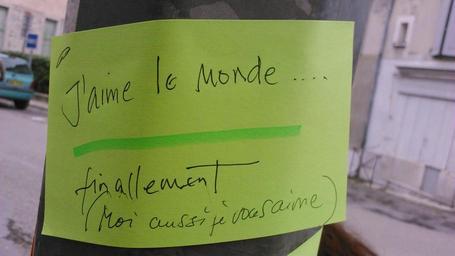 J'aime le monde ....
finallement
(Moi aussi je vous aime)